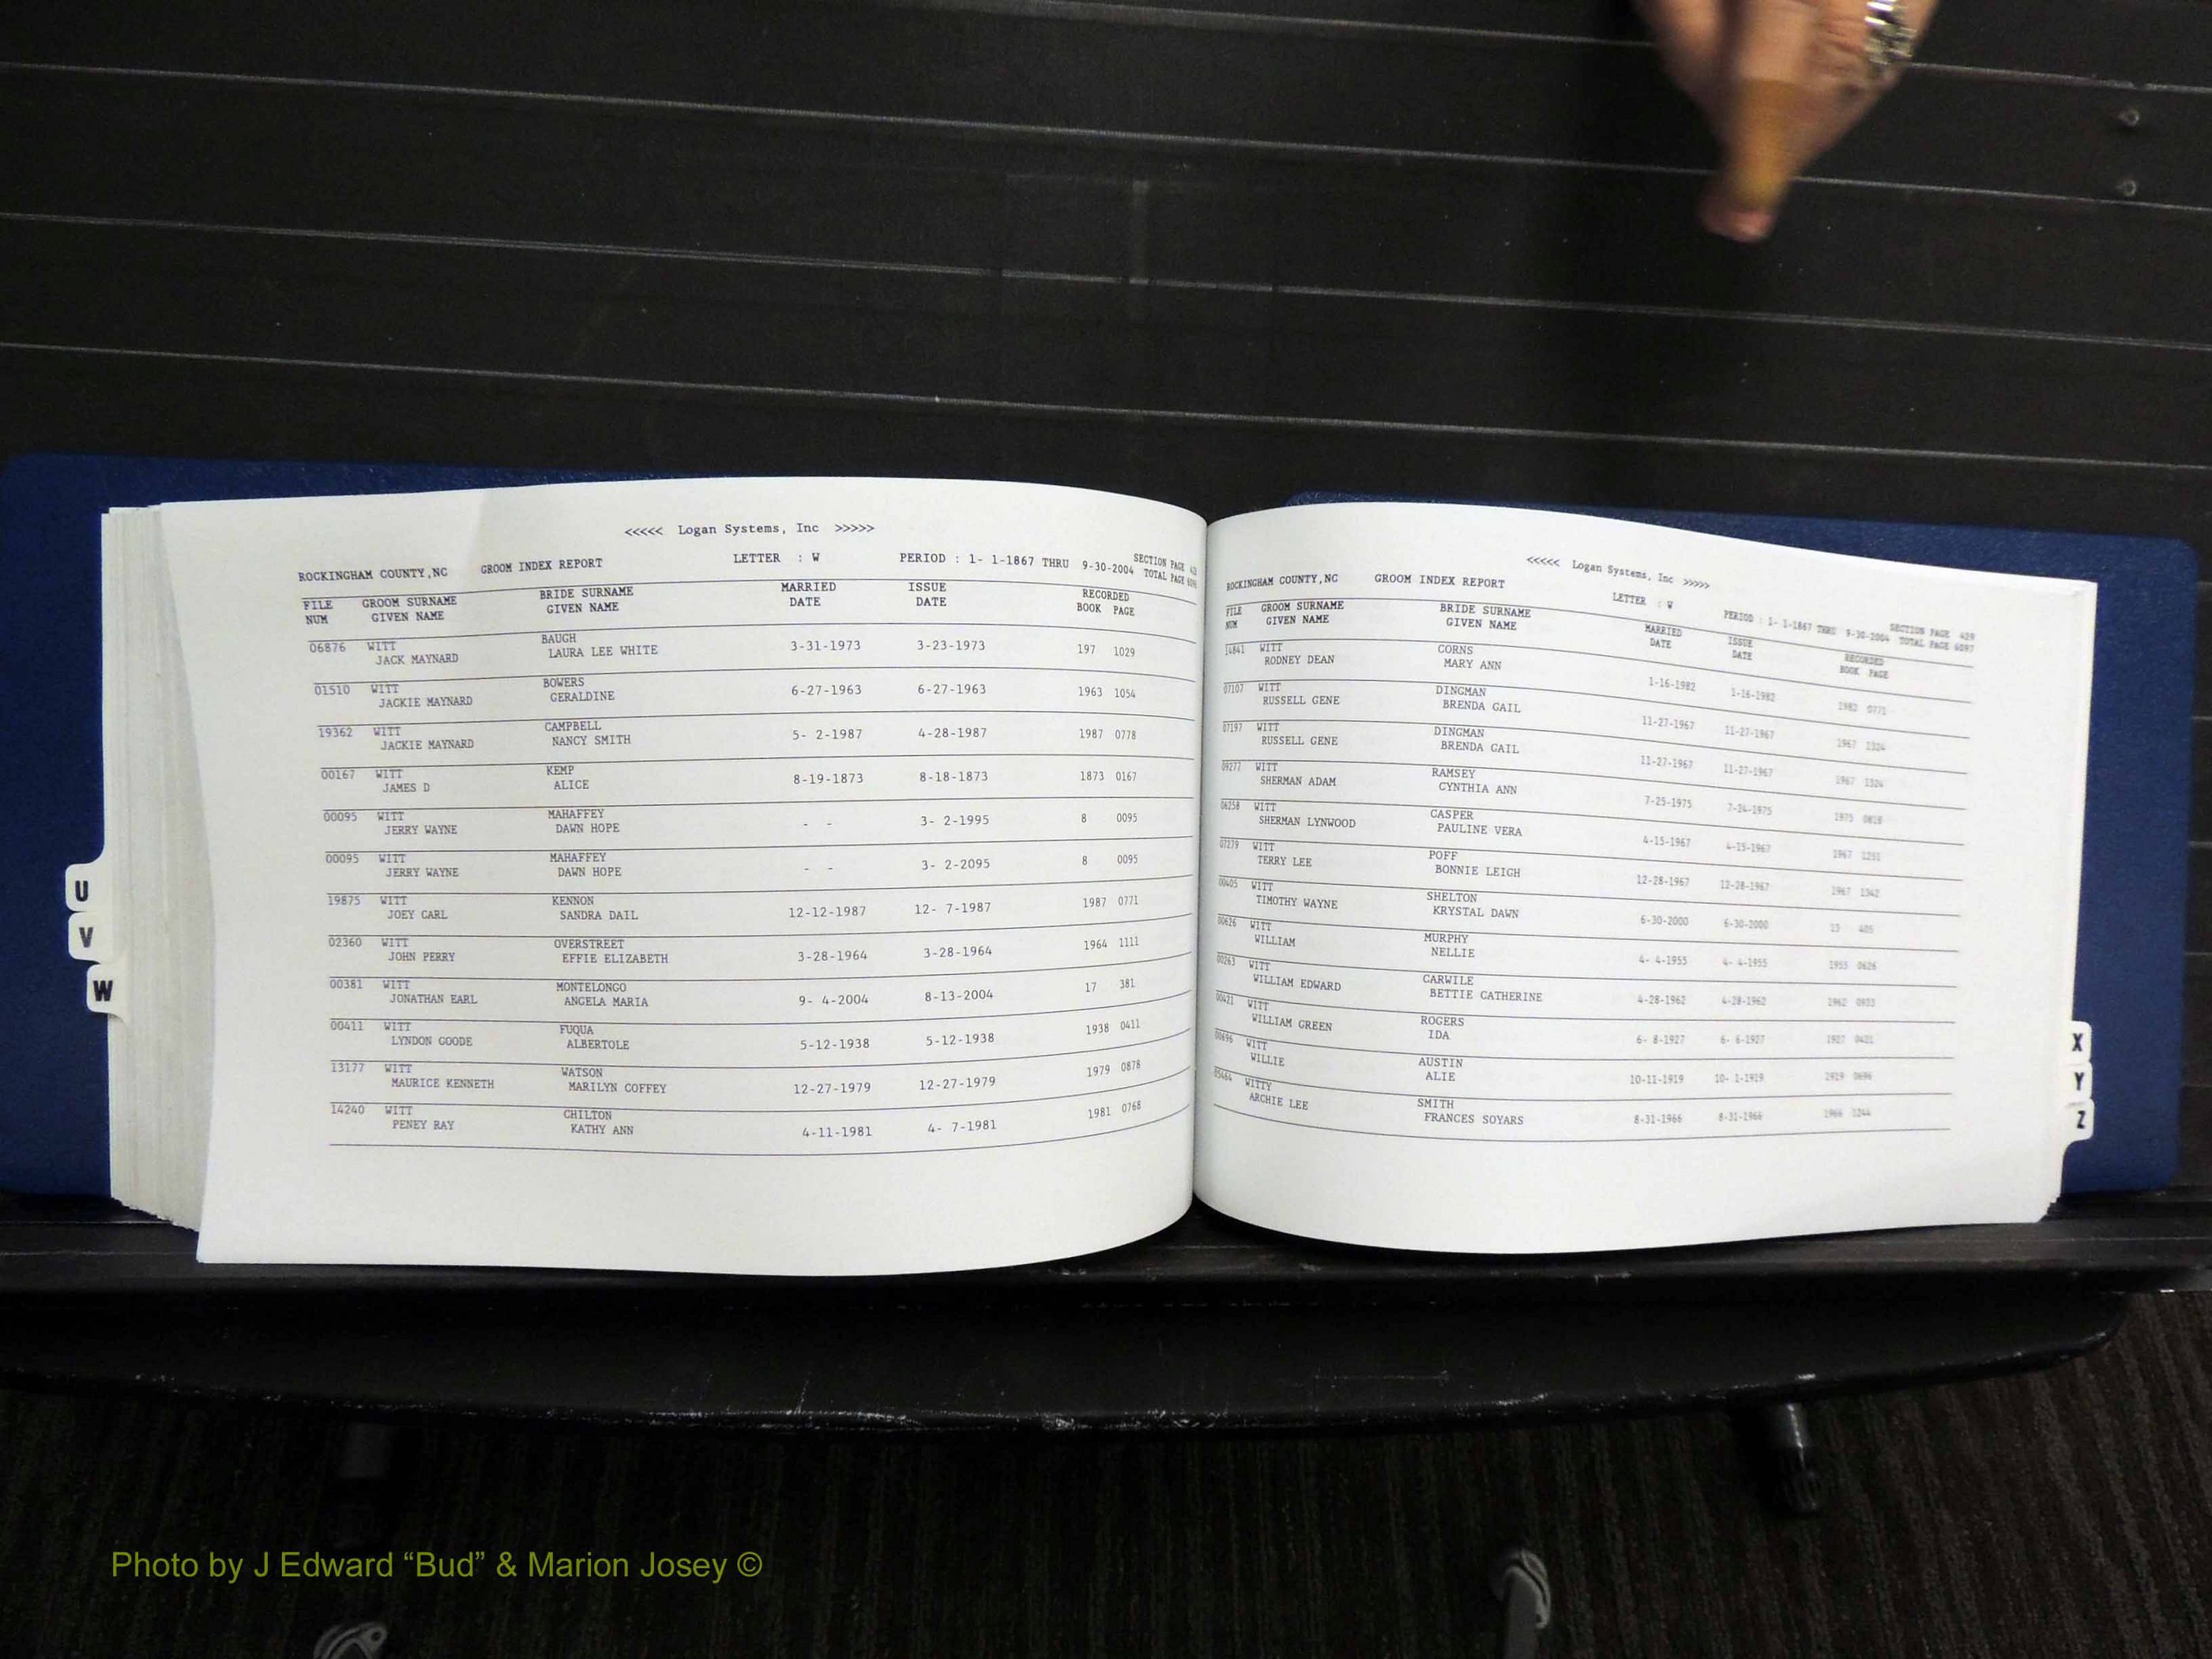 <<<<< Logan Systems, Inc >>>>>
ROCKINGHAM COUNTY,NC GROOM INDEX REPORT LETTER : W PERIOD : 1- 1-1867 THRU 9-30-2004 SECTION PAGE
TOTAL PAGE
FILE GROOM SURNAME BRIDE SURNAME MARRIED ISSUE RECORDED
NUM GIVEN NAME GIVEN NAME DATE DATE BOOK PAGE
06876 WITT BAUGH 3-31-1973 3-23-1973 197 1029
JACK MAYNARD LAURA LEE WHITE
01510 WITT BOWERS 6-27-1963 6-27-1963 1963 1054
JACKIE MAYNARD GERALDINE
19362 WITT CAMPBELL 5- 2-1987 4-28-1987 1987 0778
JACKIE MAYNARD NANCY SMITH
00167 WITT KEMP 8-19-1873 8-18-1873 1873 0167
JAMES D ALICE
00095 WITT MAHAFFEY - - 3- 2-1995 8 0095
JERRY WAYNE DAWN HOPE
00095 WITT MAHAFFEY - - 3- 2-2095 8 0095
JERRY WAYNE DAWN HOPE
19875 WITT KENNON 12-12-1987 12- 7-1987 1987 0771
JOEY CARL SANDRA DAIL
02360 WITT OVERSTREET 3-28-1964 3-28-1964 1964 1111
JOHN PERRY EFFIE ELIZABETH
00381 WITT MONTELONGO 9- 4-2004 8-13-2004 17 381
JONATHAN EARL ANGELA MARIA
00411 WITT FUQUA 5-12-1938 5-12-1938 1938 0411
LYNDON GOODE ALBERTOLE
13177 WITT WATSON 12-27-1979 12-27-1979 1979 0876
MAURICE KENNETH MARILYN COFFEY
14240 WITT CHILTON 4-11-1981 4- 7-1981 1981 0768
PENEY RAY KATHY ANN
U
V
W
<<<<< Logan Systems, Inc >>>>>
ROCKINGHAM COUNTY,NC GROOM INDEX REPORT LETTER : W PERIOD : 1- 1-1867 THRU 9-30-2004 SECTION PAGE 429
TOTAL PAGE 6097
FILE GROOM SURNAME BRIDE SURNAME MARRIED ISSUE RECORDED
NUM GIVEN NAME GIVEN NAME DATE DATE BOOK PAGE
14841 WITT CORNS 1-16-1982 1-16-1982 1982 0771
RODNEY DEAN MARY ANN
07107 WITT DINGMAN 11-27-1967 11-27-1967 1967 1324
RUSSELL GENE BRENDA GAIL
07197 WITT DINGMAN 11-27-1967 11-27-1967 1967 1324
RUSSELL GENE BRENDA GAIL
09277 WITT RAMSEY 7-25-1975 7-24-1975 1975
SHERMAN ADAM CYNTHIA ANN
06258 WITT CASPER 4-15-1967 4-15-1967 1967 1251
SHERMAN LYNWOOD PAULINE VERA
07279 WITT POFF 12-28-1967 12-28-1967 1967 1342
TERRY LEE BONNIE LEIGH
00405 WITT SHELTON 6-30-2000 6-30-2000 13 405
TIMOTHY WAYNE KRYSTAL DAWN
00626 WITT MURPHY 4- 4-1955 4- 4-1955 1955 0626
WILLIAM NELLIE
00263 WITT CARWILE 4-28-1962 4-28-1962 1962
WILLIAM EDWARD BETTIE CATHERINE
00421 WITT ROGERS 6- 8-1927 6- 6-1927 1927 0421
WILLIAM GREEN IDA
00696 WITT AUSTIN 10-11-1919 10- 1-1919 1919 0696
WILLIE ALIE
05464 WITTY SMITH 8-31-1966 8-31-1966 1966 1244
ARCHIE LEE FRANCES SOYARS
X
Y
Z
Photo by J Edward “Bud” & Marion Josey ©